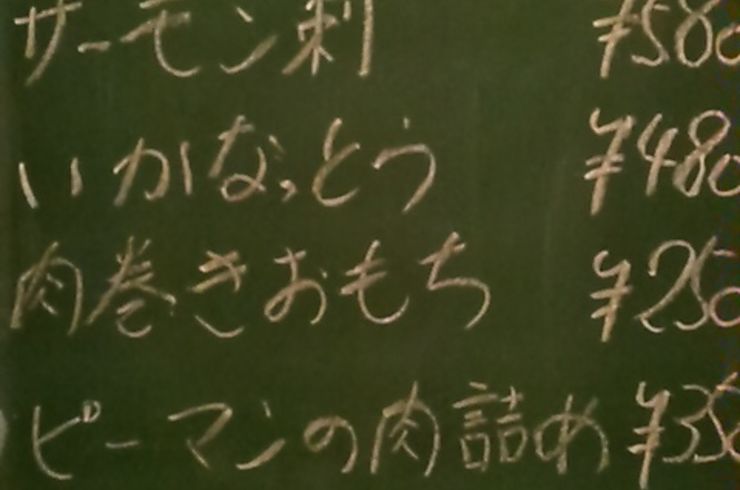 サーモン刺 ¥580
いかなっとう ¥480
肉巻きおもち ¥250
ピーマンの肉詰め ¥350